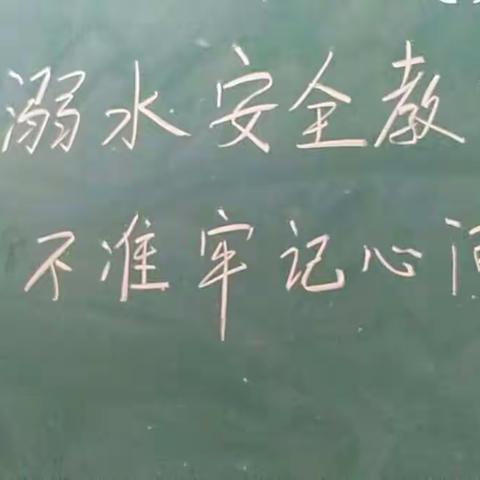 溺水安全教
不准牢记心间